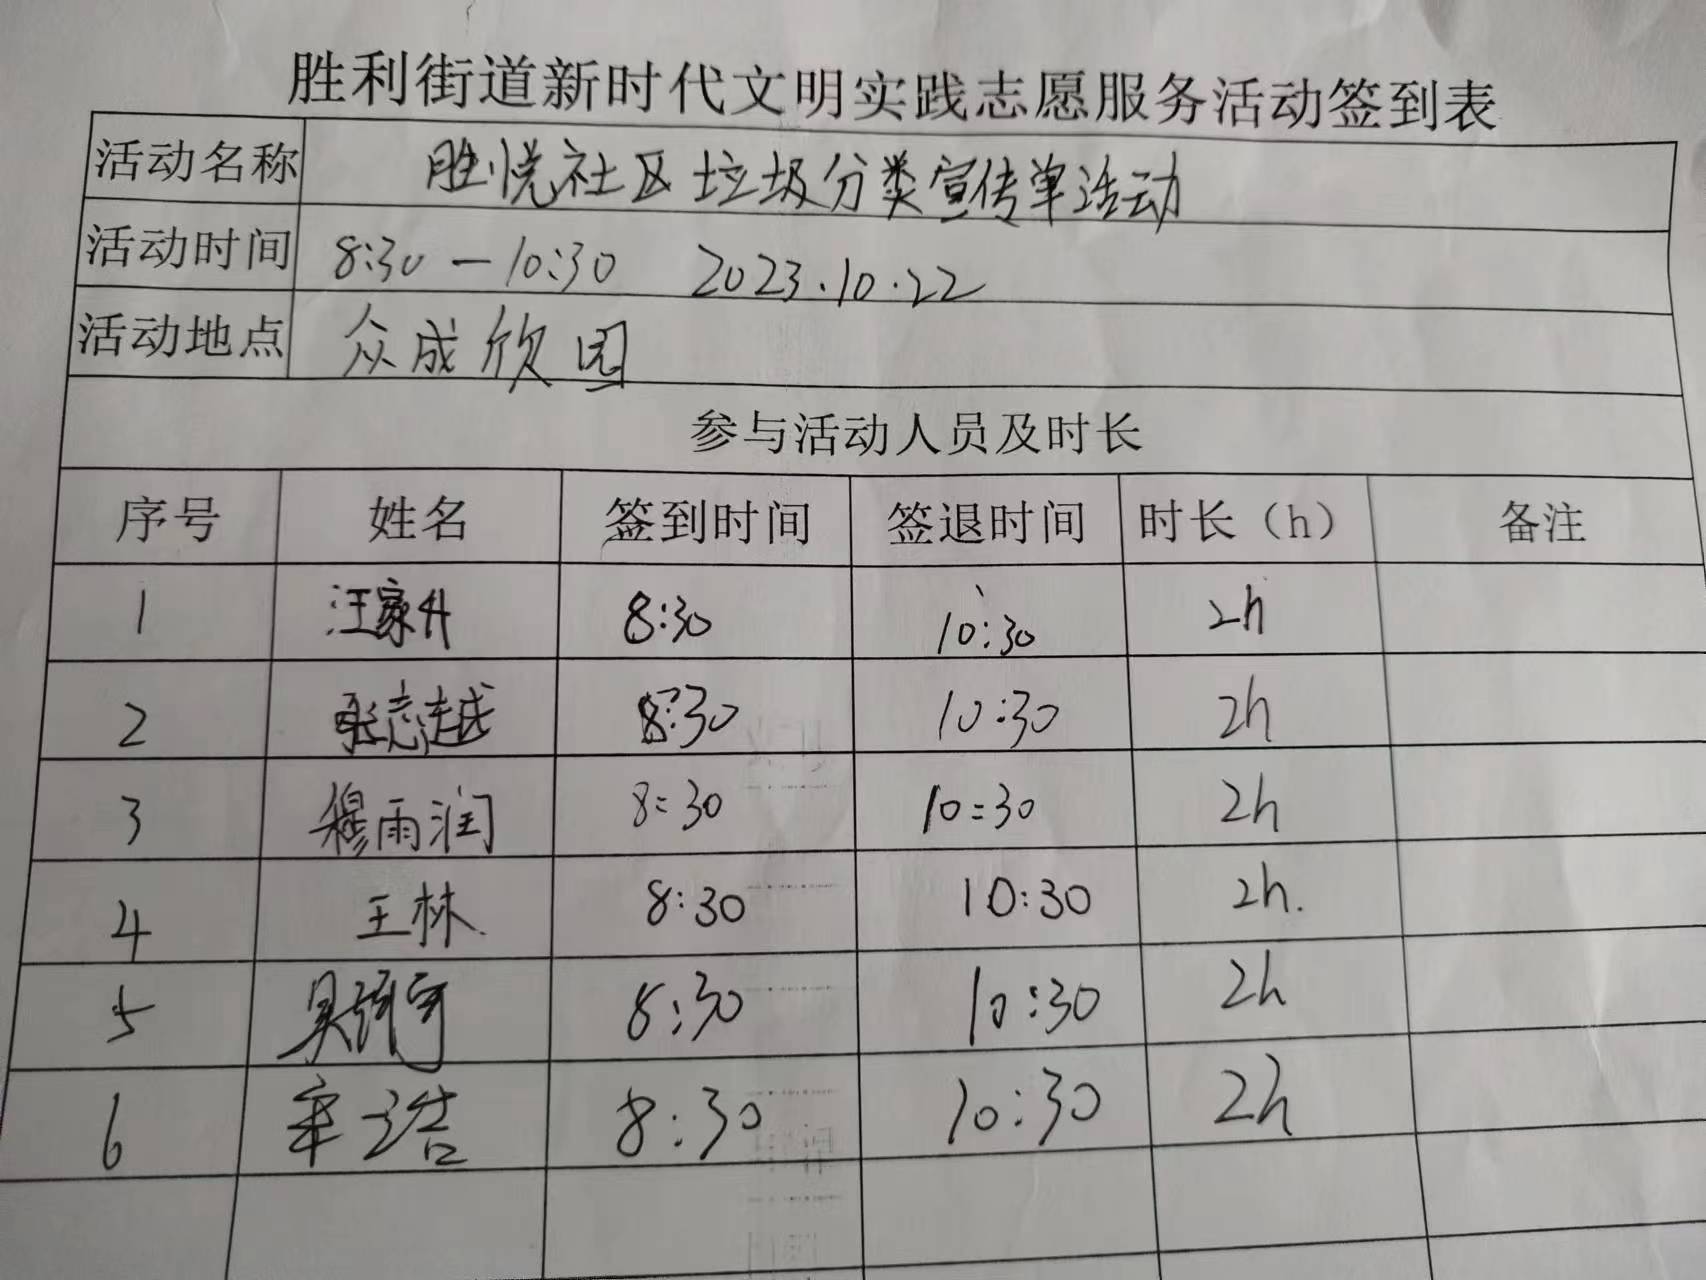 胜利街道新时代文明实践志愿服务活动签到表
活动名称 胜悦社区垃圾分类宣传单活动
活动时间 8:30—10:30 2023.10.22
活动地点 众成欣园
参与活动人员及时长
序号 姓名 签到时间 签退时间 时长（h） 备注
1 汪家升 8:30 10:30 2h
2 张志越 8:30 10:30 2h
3 穆雨润 8:30 10:30 2h
4 王林 8:30 10:30 2h.
5 8:30 10:30 2h
6 8:30 10:30 2h